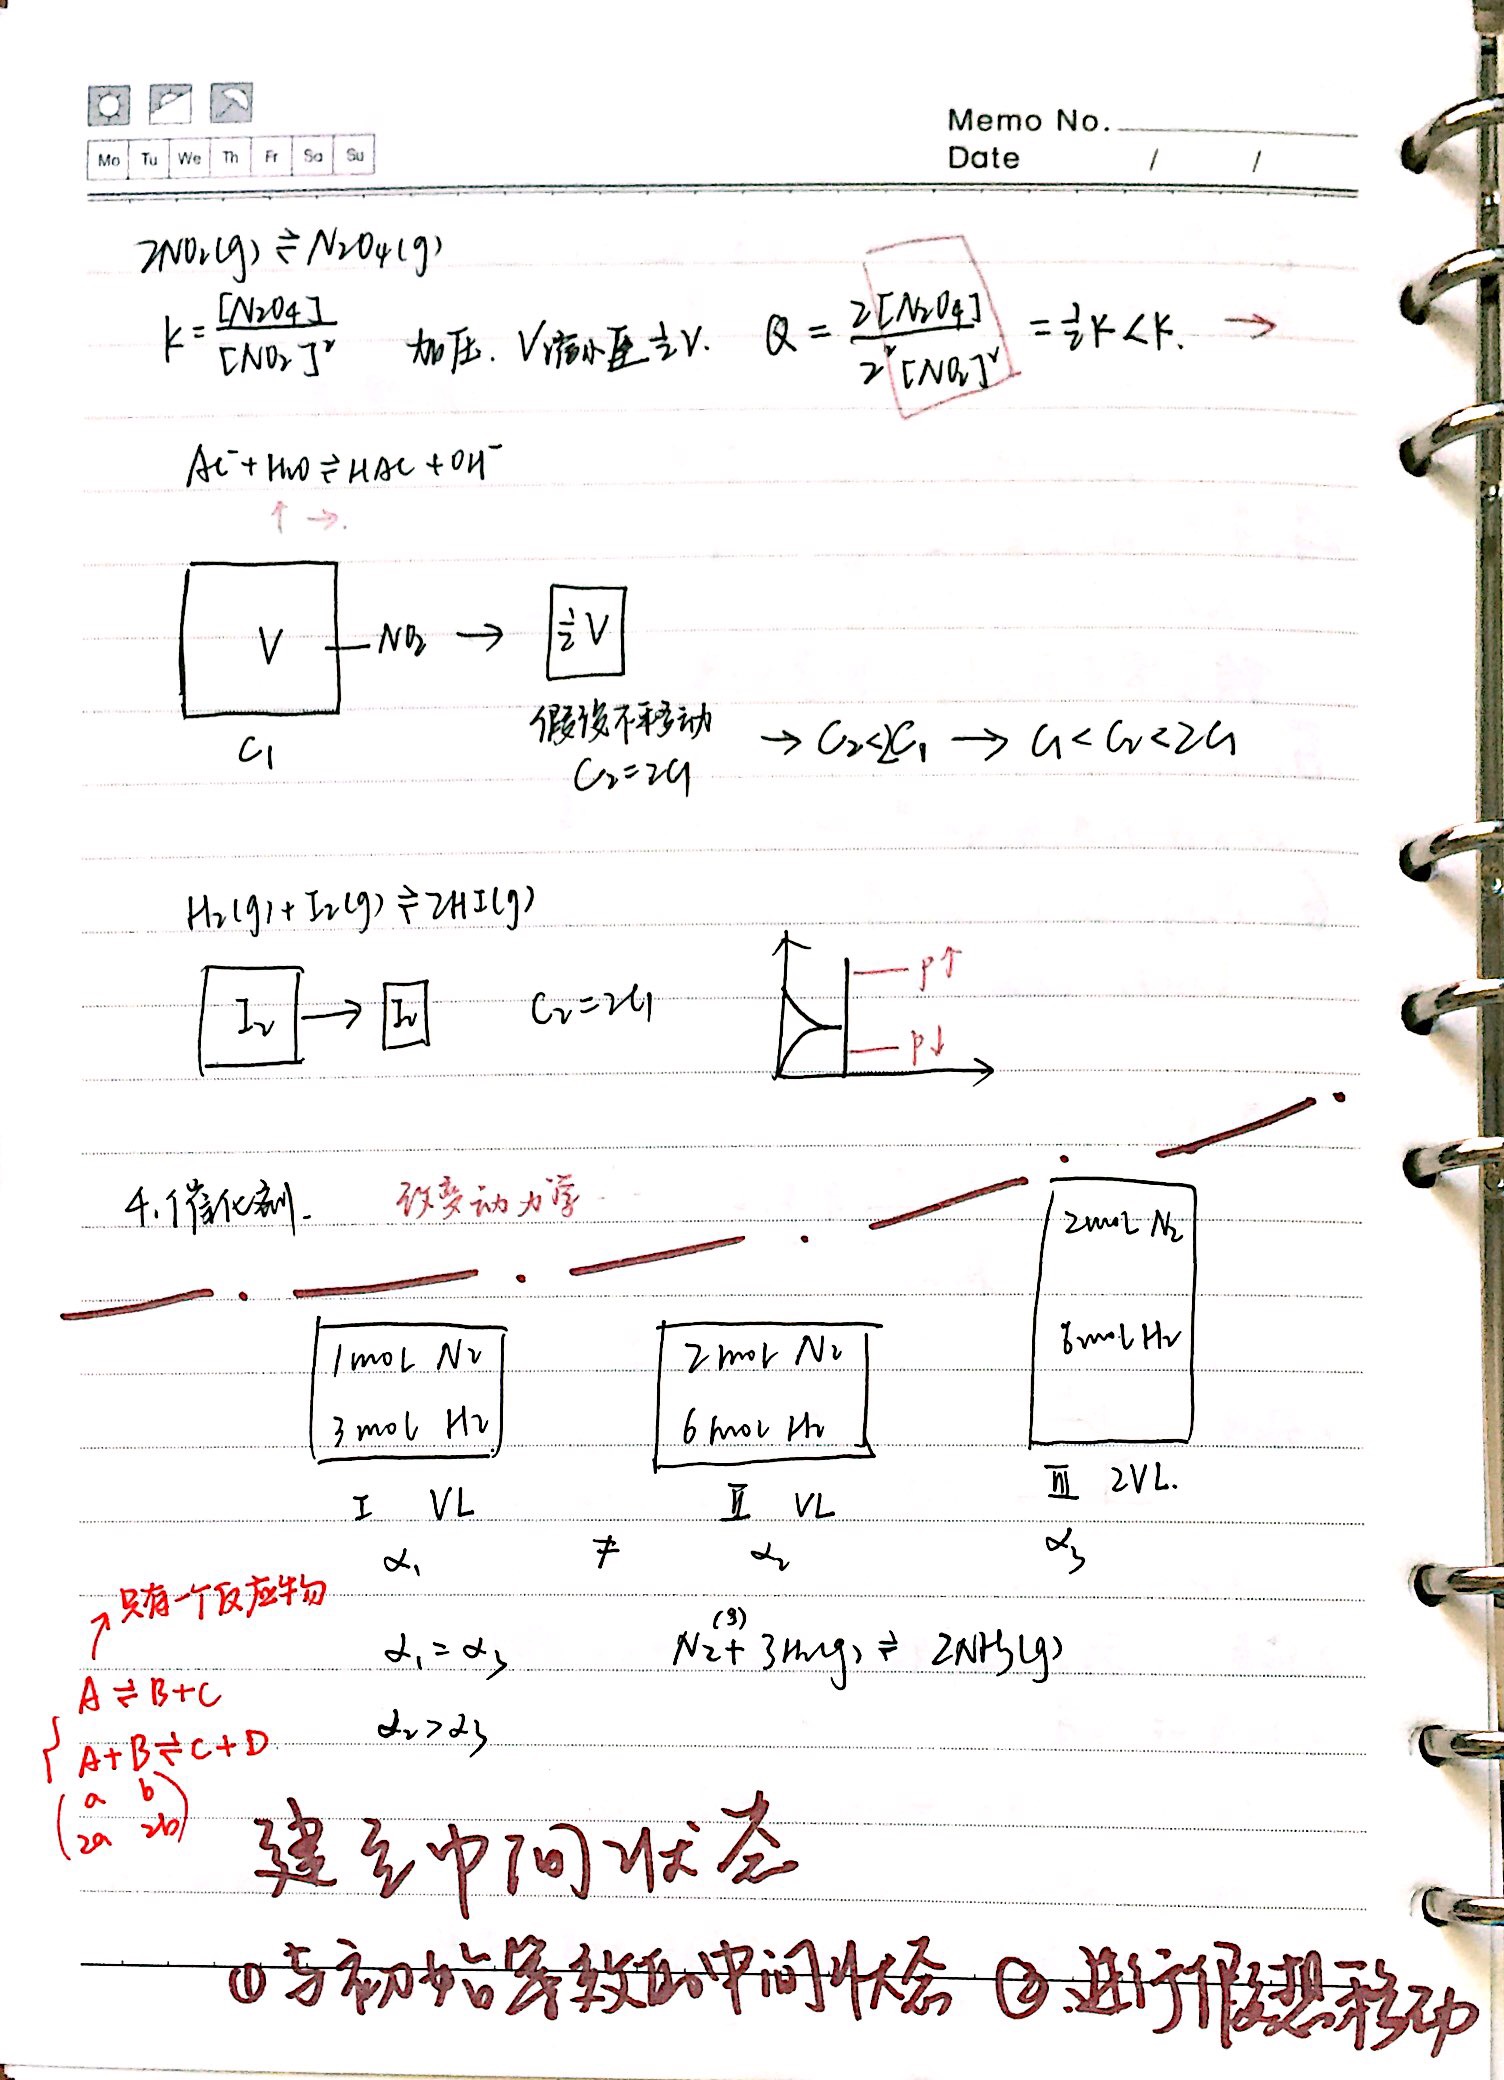 Memo No.
Mo Tu We Th Fr Sa Su
Date / /
2NO₂(g) ⇌ N₂O₄(g)
K = [N₂O₄] / [NO₂]² 加压. V缩小至 ½V. Q = 2[N₂O₄] / 2²[NO₂]² = ½K < K. →
Ac⁻ + H₂O ⇌ HAc + OH⁻
↑ →.
V — NO₂ → ½V
C₁
假设不移动
C₂=2C₁ → C₂<2C₁ → C₁<C₂<2C₁
H₂(g)+I₂(g) ⇌ 2HI(g)
I₂ → I₂ C₂=2C₁
P↑
P↓
4.催化剂. 改变动力学.
1mol N₂
3mol H₂
I VL
α₁
≠
2mol N₂
6mol H₂
II VL
α₂
2mol N₂
6mol H₂
III 2VL.
α₃
↗只有一个反应物
α₁=α₃ N₂(g)+3H₂(g) ⇌ 2NH₃(g)
A ⇌ B+C
α₂>α₃
A+B ⇌ C+D
(a b
2a 2b)
建立中间状态
①与初始等效的中间状态 ②.进行假想移动